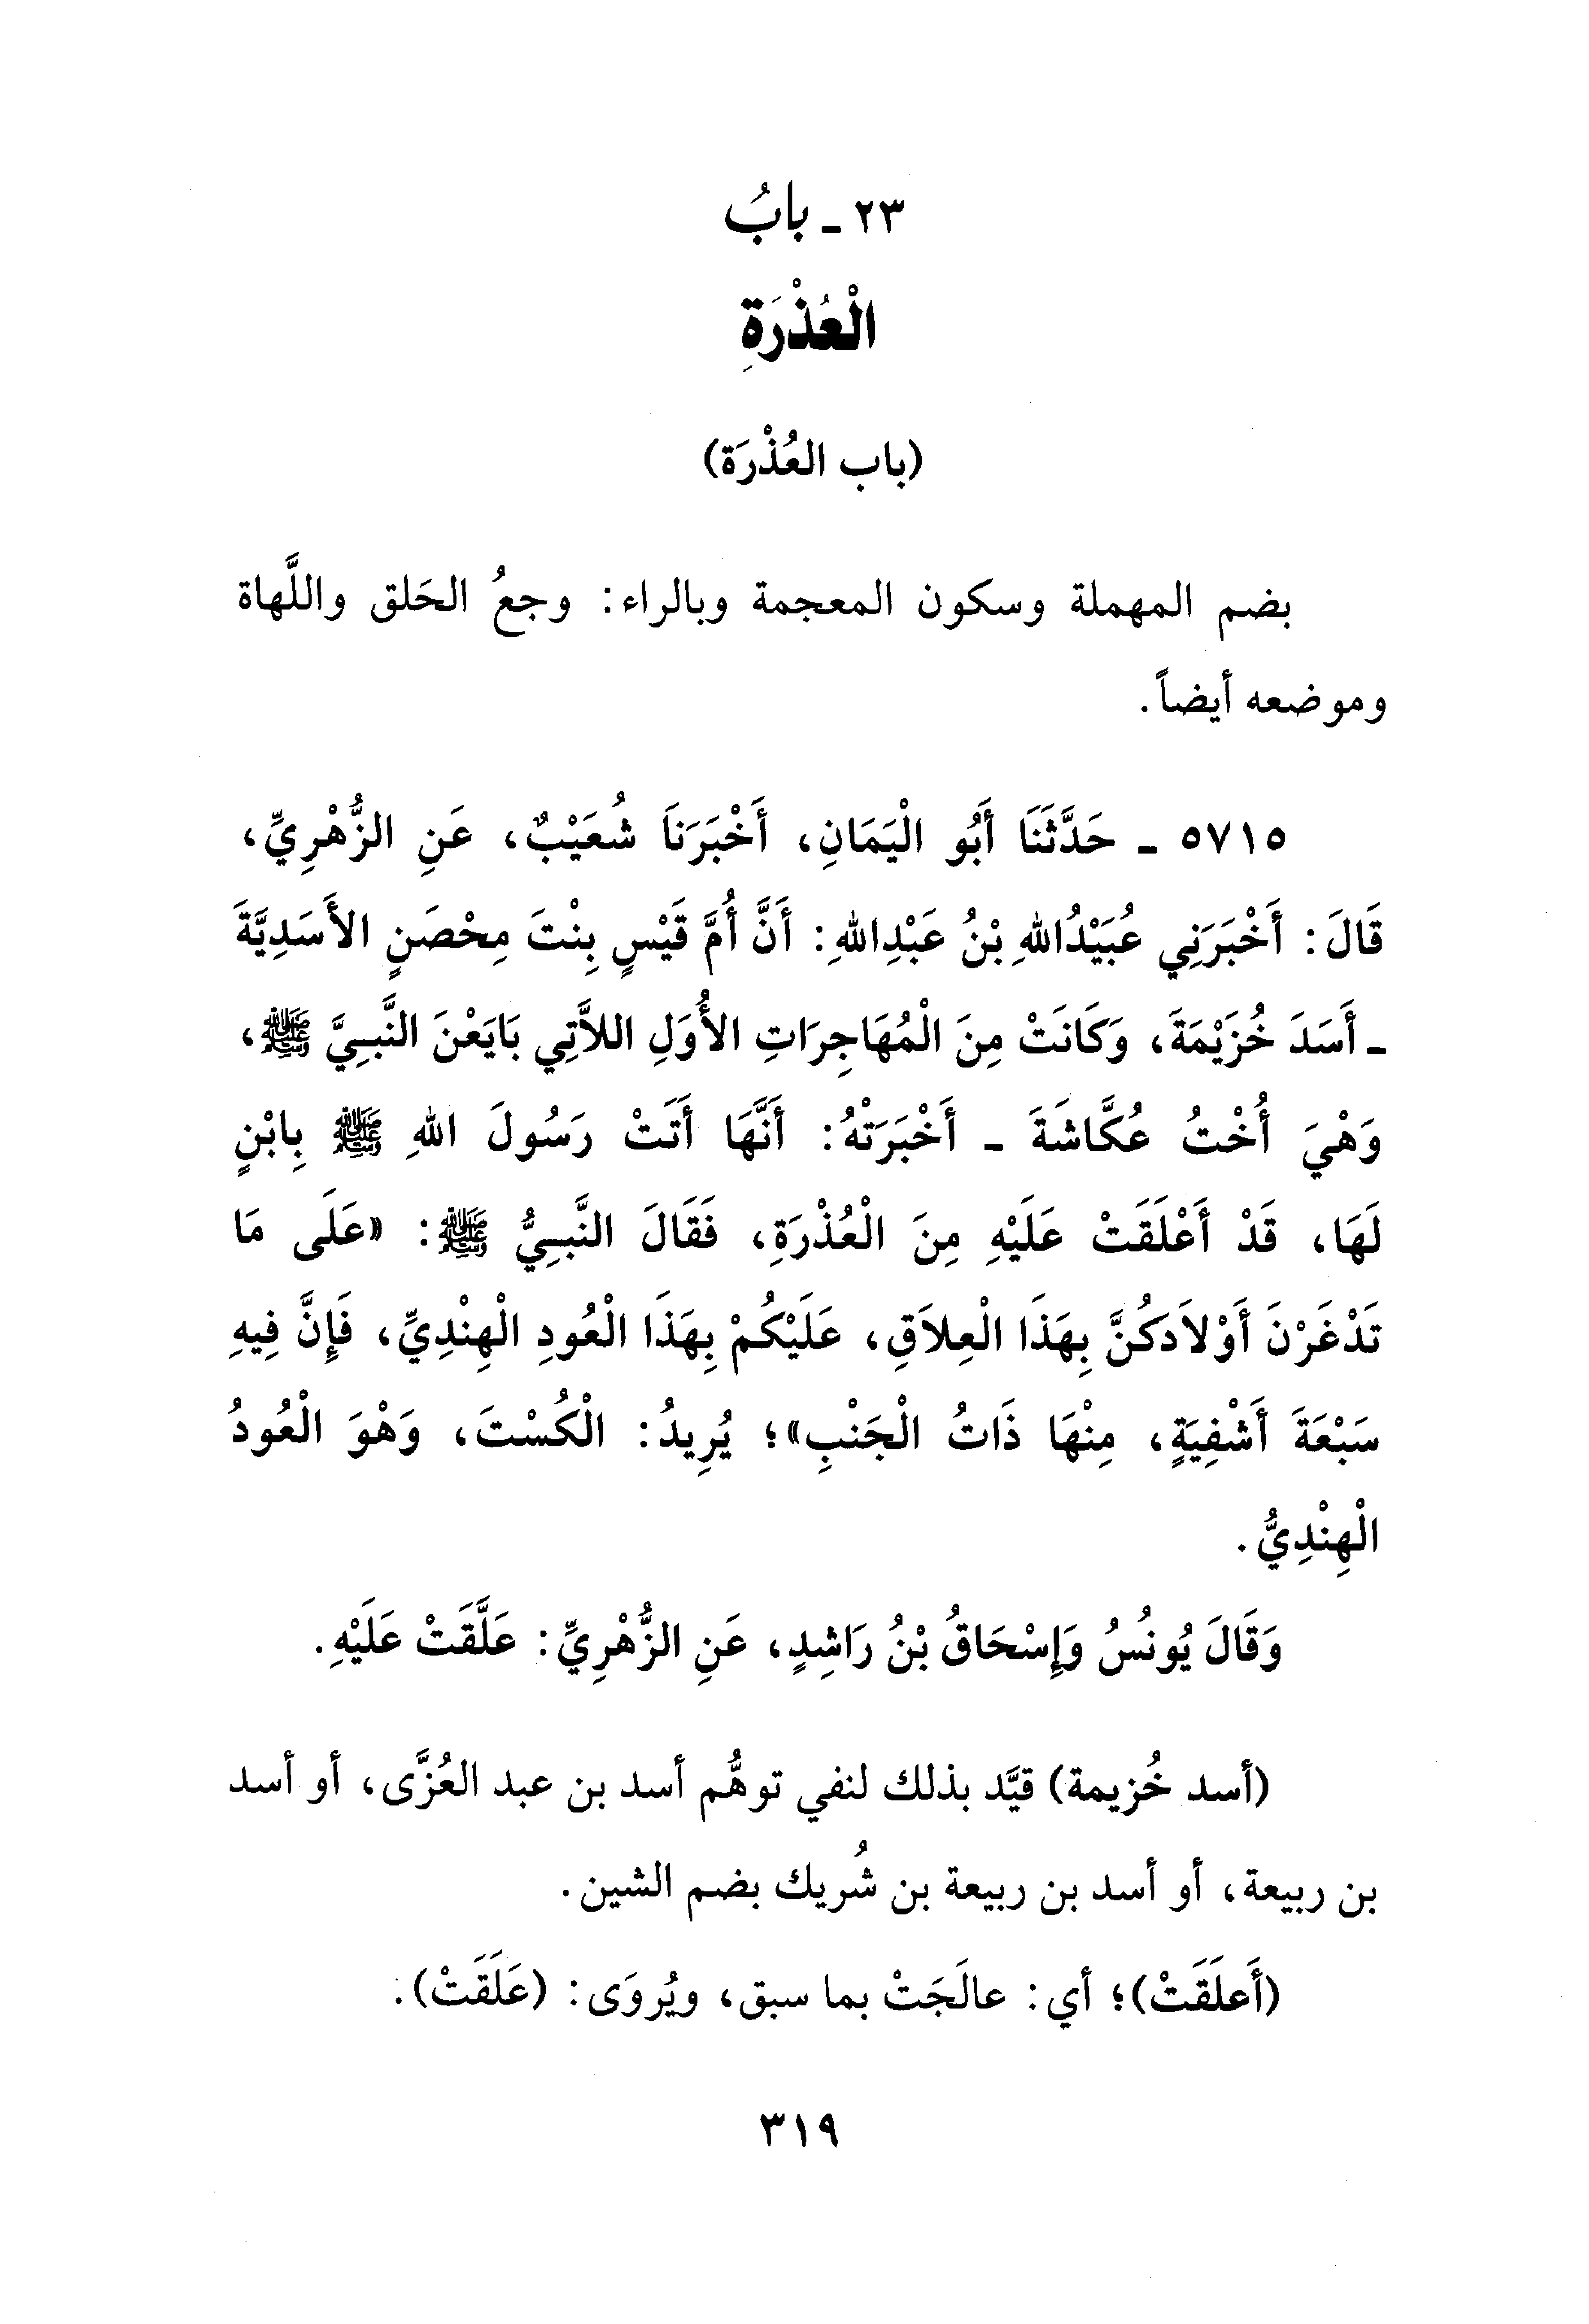 ٢٣ - بابُ
الْعُذْرَةِ
(باب العُذْرَة)
بضم المهملة وسكون المعجمة وبالراء: وجعُ الحَلق واللَّهاة
وموضعه أيضاً.
٥٧١٥ - حَدَّثَنَا أَبُو الْيَمَانِ، أَخْبَرَنَا شُعَيْبٌ، عَنِ الزُّهْرِيِّ،
قَالَ: أَخْبَرَنِي عُبَيْدُاللهِ بْنُ عَبْدِاللهِ: أَنَّ أُمَّ قَيْسٍ بِنْتَ مِحْصَنٍ الأَسَدِيَّةَ
- أَسَدَ خُزَيْمَةَ، وَكَانَتْ مِنَ الْمُهَاجِرَاتِ الأُوَلِ اللاَّتِي بَايَعْنَ النَّبِيَّ ﷺ،
وَهْيَ أُخْتُ عُكَّاشَةَ - أَخْبَرَتْهُ: أَنَّهَا أَتَتْ رَسُولَ اللهِ ﷺ بِابْنٍ
لَهَا، قَدْ أَعْلَقَتْ عَلَيْهِ مِنَ الْعُذْرَةِ، فَقَالَ النَّبِيُّ ﷺ: «عَلَى مَا
تَدْغَرْنَ أَوْلاَدَكُنَّ بِهَذَا الْعِلاَقِ، عَلَيْكُمْ بِهَذَا الْعُودِ الْهِنْدِيِّ، فَإِنَّ فِيهِ
سَبْعَةَ أَشْفِيَةٍ، مِنْهَا ذَاتُ الْجَنْبِ»؛ يُرِيدُ: الْكُسْتَ، وَهْوَ الْعُودُ
الْهِنْدِيُّ.
وَقَالَ يُونُسُ وَإِسْحَاقُ بْنُ رَاشِدٍ، عَنِ الزُّهْرِيِّ: عَلَّقَتْ عَلَيْهِ.
(أسد خُزيمة) قيَّد بذلك لنفي توهُّم أسد بن عبد العُزَّى، أو أسد
بن ربيعة، أو أسد بن ربيعة بن شُريك بضم الشين.
(أَعلَقَتْ)؛ أي: عالَجَتْ بما سبق، ويُروَى: (عَلَقَتْ).
٣١٩